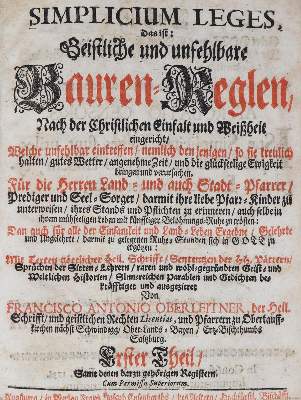 SIMPLICIUM LEGES,
Das ist:
Geistliche und unfehlbare
Bauren-Reglen,
Nach der Christlichen Einfalt und Weißheit
eingericht/
Welche unfehlbar eintreffen/ nemlich den jenigen/ so sie treulich
halten/ gutes Wetter/ angenehme Zeit/ und die glückseelige Ewigkeit
bringen und verursachen.
Für die Herren Land- und auch Stadt-Pfarrer/
Prediger und Seel-Sorger/ darmit ihre liebe Pfarr-Kinder zu
unterweisen/ ihres Stands und Pflichten zu erinneren/ auch selbe in
ihrem mühseeligen Leben mit künfftiger Belohnungs-Ruhe zu trösten:
Dan auch für alle der Einsamkeit und Land-Leben Ergebne/ Gelehrte
und Ungelehrte/ darmit zu gelegenen Ruhe-Stunden sich in GOTT zu
ergötzen:
Mit Texten Göttlicher Heil. Schrifft/ Sententzen der HH. Vättern/
Sprüchen der Sitten-Lehrern/ raren und wohl-gegründten Geist- und
Weltlichen Historien/ Sinnreichen Parablen und Gedichten be-
kräfftiget und ausgezieret
Von
FRANCISCO ANTONIO OBERLEITNER, der Heil.
Schrifft/ und geistlichen Rechten Licentiat, und Pfarrern zu Obertauff-
kirchen nächst Schwindegg/ Ober-Lands-Bayrn/ Ertz-Bischthums
Saltzburg.
Erster Theil/
Samt denen darzu gehörigen Registern.
Cum Permissu Superiorum.
Augspurg/ in Verlag